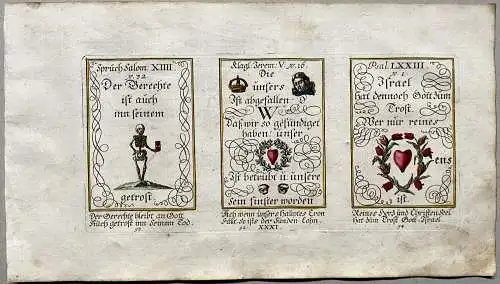 Sprüch Salom. XIIII
v. 32
Der Gerechte
ist auch
inn seinem
getrost
Der Gerechte bleibt an Gott
Auch getrost inn Seinem Tod.
Klagl. Jerem. V. v. 16.
Die
unsers
Ist abgefallen O
W
Daß wir so gesündiget
haben unser
Ist betrübt u unsere
Sein finster worden
Ach wenn unsers Hauptes Cron
Fält, so ists der Sünden Lohn.
XXXI
Psal. LXXIII.
v. 1
Israel
hat dennoch Gott zum
Trost.
Wer nur reines
ens
ist.
Reines Hertz und Christen
hat zum Trost Gott Israel.